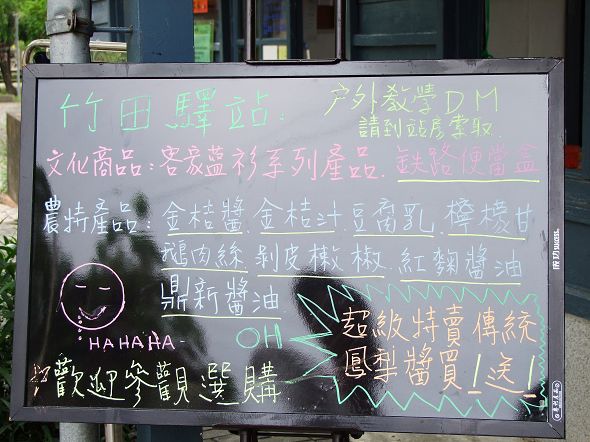 竹田驛站:
户外教學DM
請到站房索取.
文化商品:客家藍衫系列產品.鉄路便當盒
農特產品:金桔醬.金桔汁.豆腐乳.檸檬甘
鵝肉絲 剝皮辣椒.紅麴醬油
鼎新醬油
HAHAHA-
OH
超級特賣傳統
鳳梨醬買!送!
歡迎參觀選購